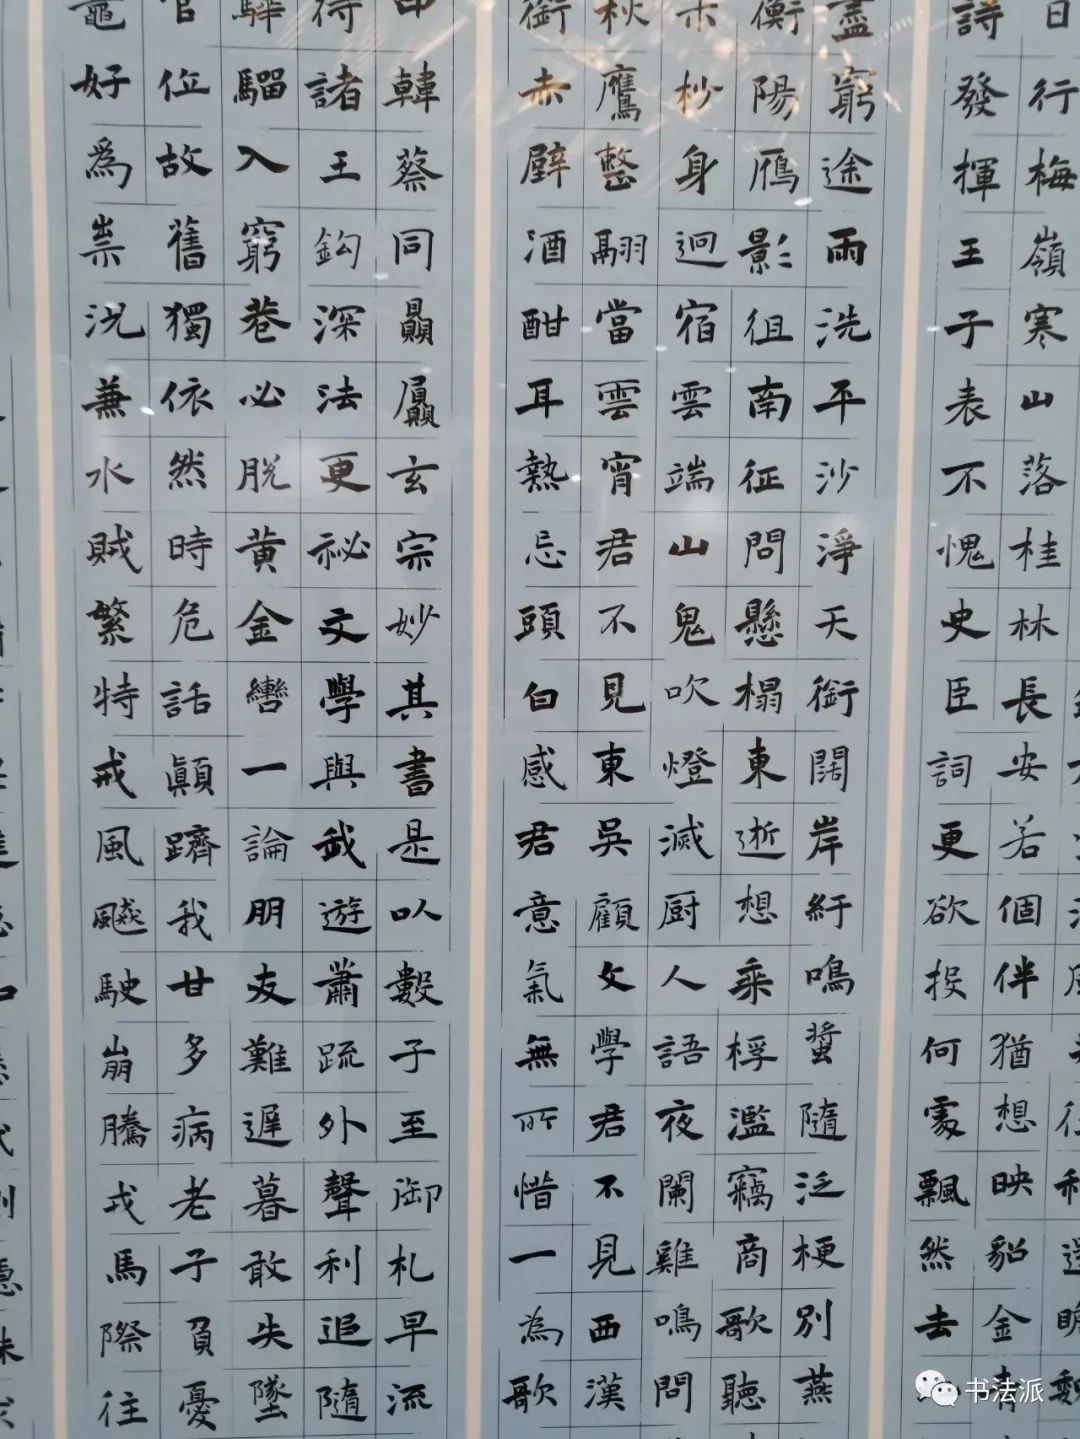 日行梅嶺寒山落桂林長安若個伴猶想映貂金
詩發揮王子表不愧史臣詞更欲投何處飄然去
盡窮途雨洗平沙淨天銜闊岸紆鳴螿隨泛梗別燕
衡陽雁影徂南征問懸榻東逝想乘桴濫竊商歌聽
木杪身迥宿雲端山鬼吹燈滅厨人語夜闌雞鳴問
秋鷹整翮當雲宵君不見東吳顧文學君不見西漢
銜赤壁酒酣耳熱忘頭白感君意氣無所惜一為歌
韓蔡同贔屓玄宗妙其書是以數子至御札早流
待諸王鈎深法更秘文學與我遊蕭疏外聲利追隨
驊騮入窮巷必脫黃金轡一論朋友難遲暮敢失墜
官位故舊獨依然時危話顛躋我甘多病老子負憂
黿好為祟況兼水賊繁特戒風飈駛崩騰戎馬際往
書法派